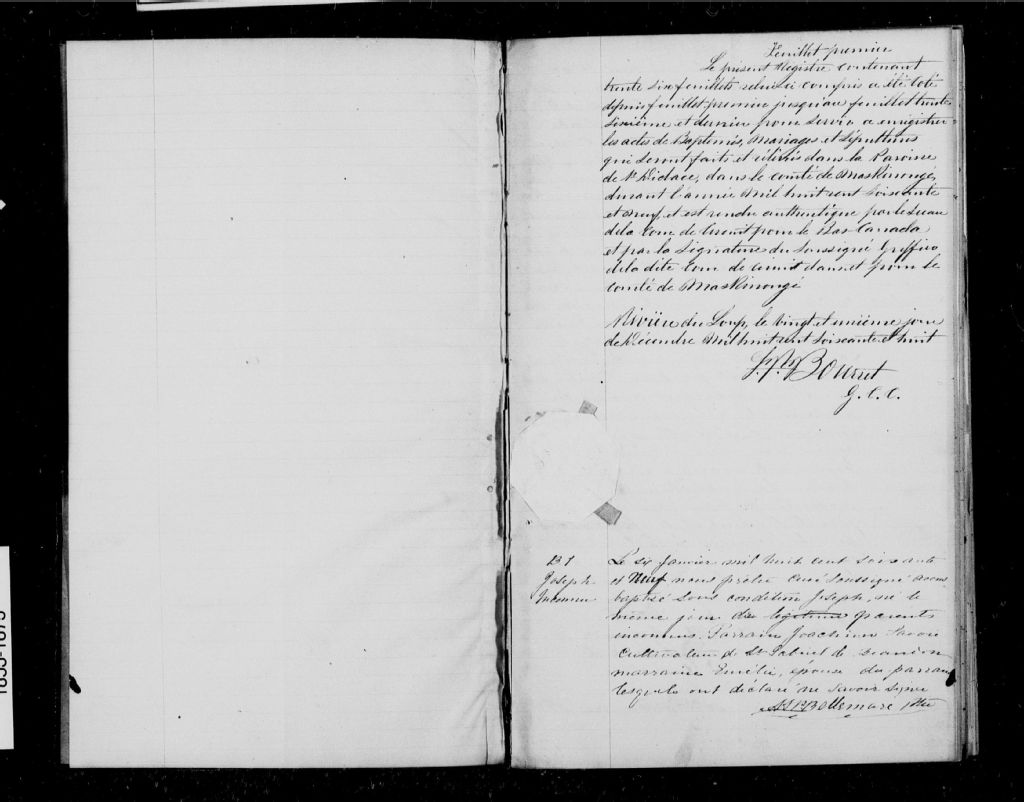 Feuillet premier
Le présent Registre contenant
trente six feuillets celui ci compris a été coté
depuis feuillet premier jusqu'au feuillet trente
sixième et dernier pour servir a enregistrer
les actes de Baptêmes, Mariages et Sépultures
qui seront faits et célébrés dans la Paroisse
de St Didace, dans le comté de Maskinongé,
durant l'année Mil huit cent soixante
et neuf, et est rendu authentique par le sceau
de la Cour de Circuit pour le Bas Canada
et par la signature du soussigné Greffier
de la dite Cour de circuit dans et pour le
comté de Maskinongé
Rivière du Loup, le vingt et unième jour
de Décembre Mil huit cent soixante et huit
Bourret
G. C. C.
B 1
Joseph
Inconnu
Le six Janvier mil huit cent soixante
et Neuf nous prêtre curé soussigné avons
baptisé sous condition Joseph, né le
même jour des légitime parents
inconnus. Parrain Joachim
cultivateur de St Gabriel de Brandon
marraine Emélie, épouse du parrain
lesquels ont déclaré ne savoir signer
Bellemare Ptre
1855-1875